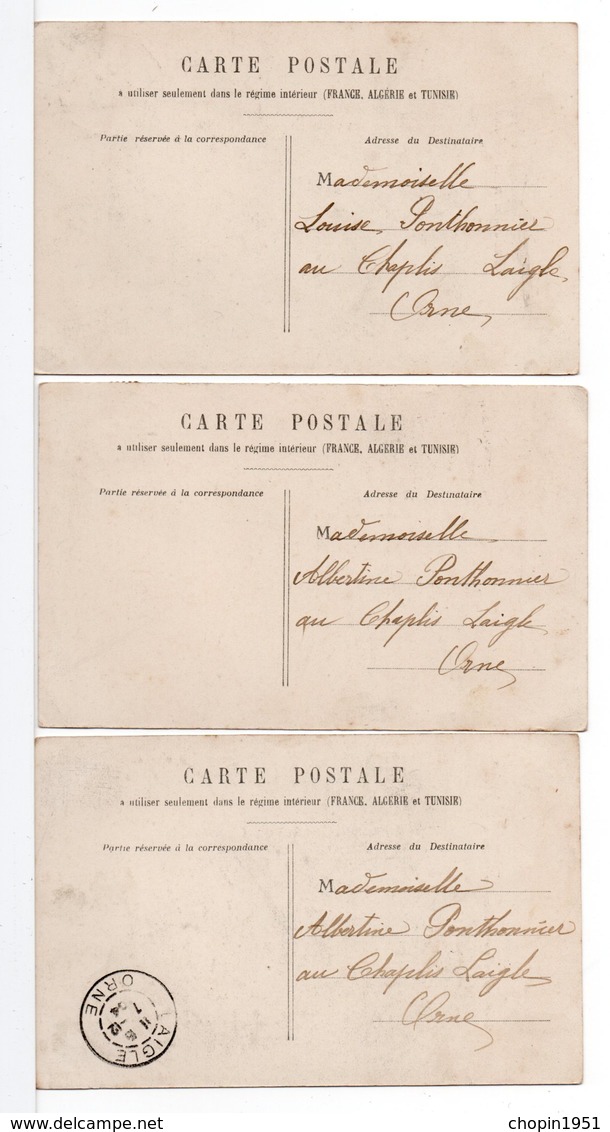 CARTE POSTALE
a utiliser seulement dans le régime intérieur (FRANCE, ALGÉRIE et TUNISIE)
Partie réservée à la correspondance
Adresse du Destinataire
Mademoiselle
Louise Ponthonnier
au Chaplis Laigle
Orne
CARTE POSTALE
a utiliser seulement dans le régime intérieur (FRANCE, ALGERIE et TUNISIE)
Partie réservée à la correspondance
Adresse du Destinataire
Mademoiselle
Albertine Ponthonnier
au Chaplis Laigle
Orne
CARTE POSTALE
a utiliser seulement dans le régime intérieur (FRANCE, ALGÉRIE et TUNISIE)
Partie réservée à la correspondance
Adresse du Destinataire
Mademoiselle
Albertine Ponthonnier
au Chaplis Laigle
Orne
LAIGLE
ORNE
chopin1951